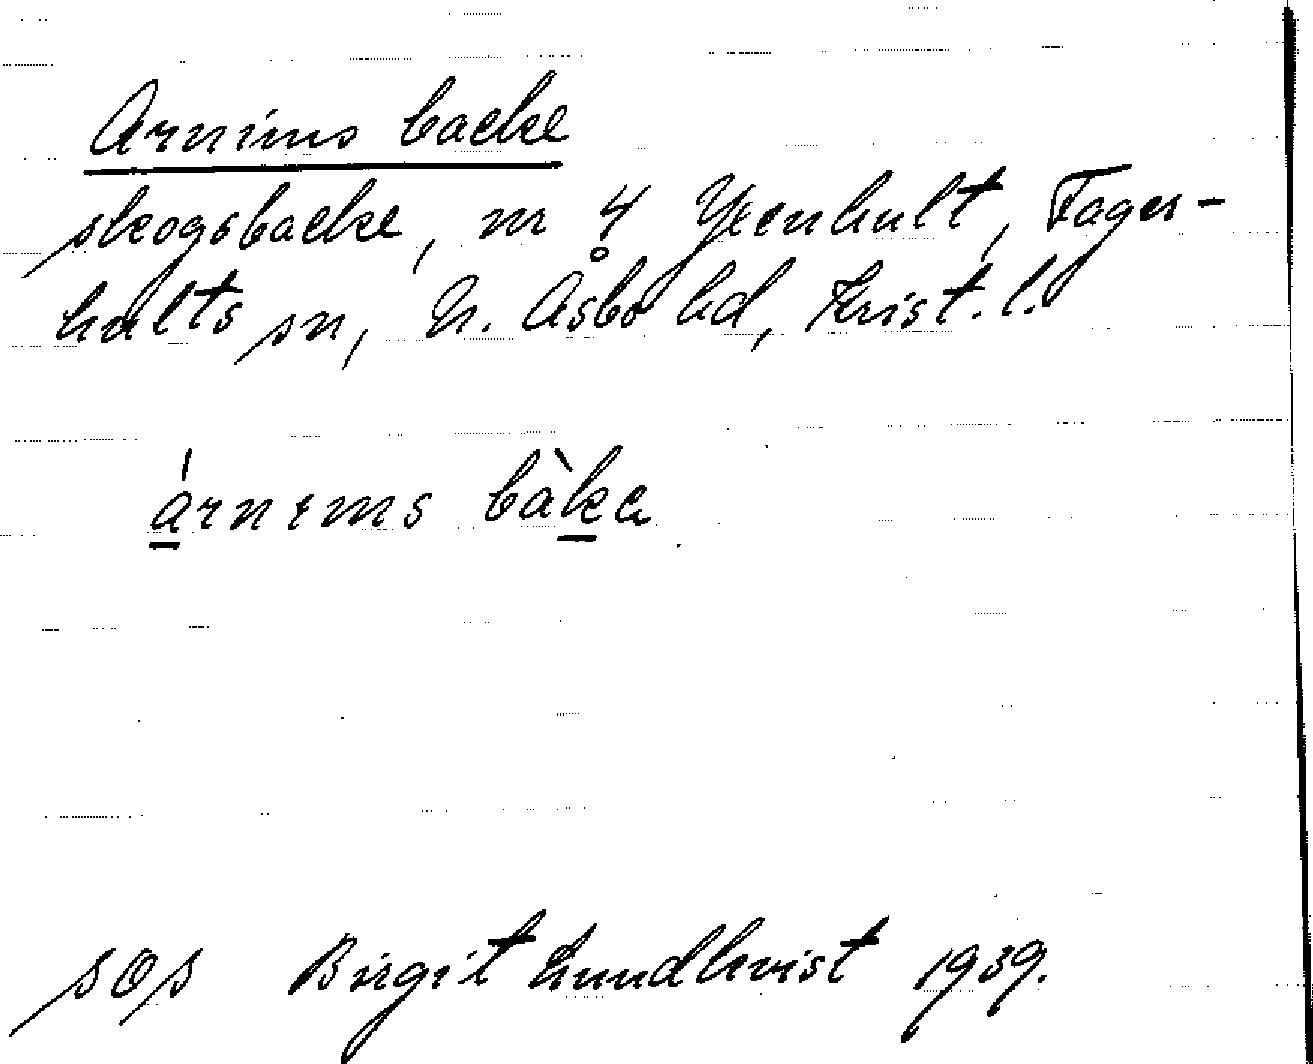 Arnims backe
skogsbacke, nr 4 Yxenhult, Fager-
hults sn, N. Åsbo hd, Krist. l.
árnɩms bàkɑ
sOs Birgit Lundkvist 1939.